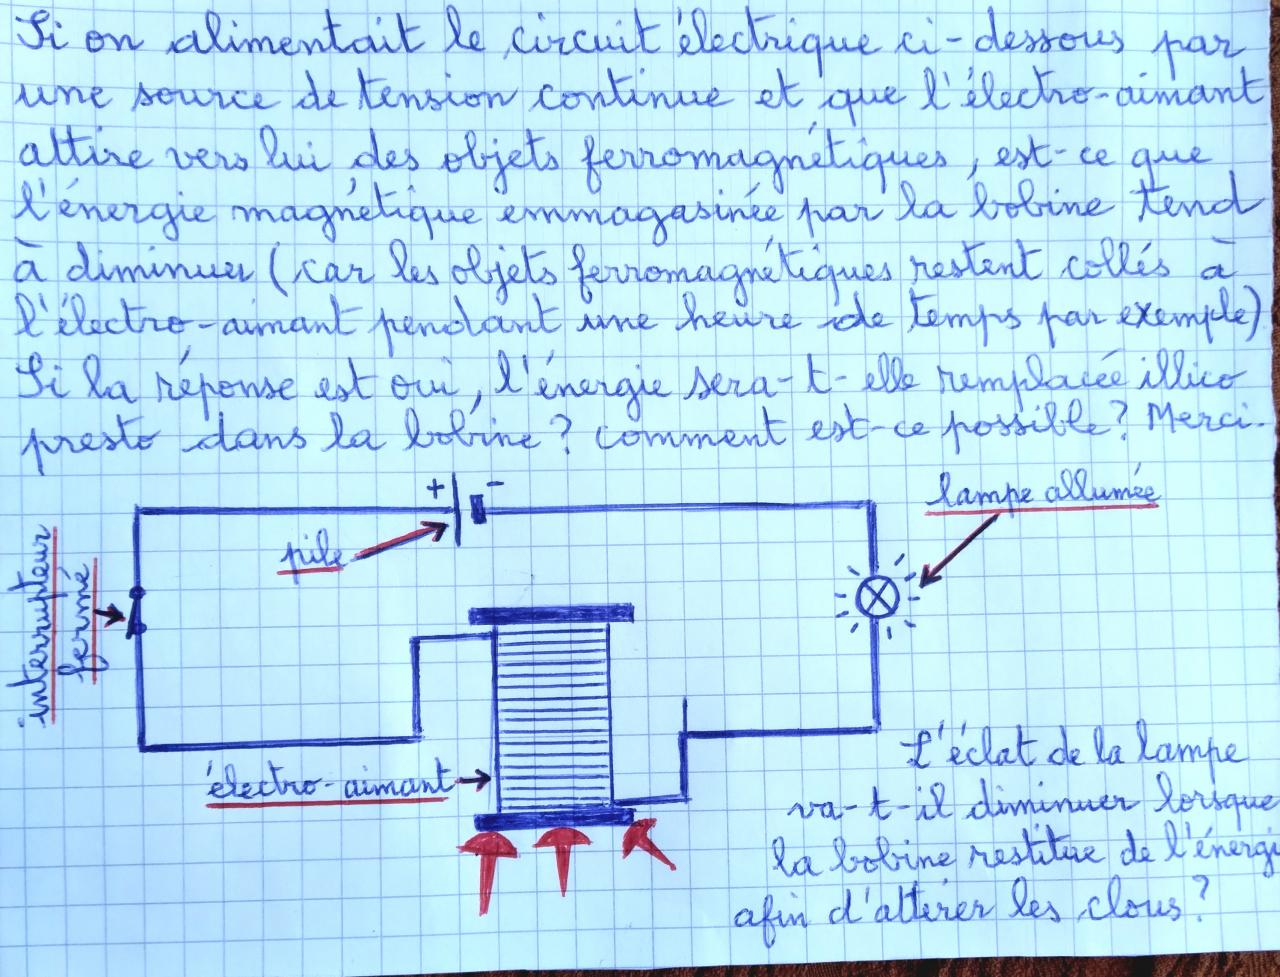 Si on alimentait le circuit électrique ci-dessous par
une source de tension continue et que l'électro-aimant
attire vers lui des objets ferromagnétiques, est-ce que
l'énergie magnétique emmagasinée par la bobine tend
à diminuer (car les objets ferromagnétiques restent collés à
l'électro-aimant pendant une heure de temps par exemple)
Si la réponse est oui, l'énergie sera-t-elle remplacée illico
presto dans la bobine ? comment est-ce possible ? Merci.
+ -
lampe allumée
pile
interrupteur
fermé
électro-aimant
L'éclat de la lampe
va-t-il diminuer lorsque
la bobine restitue de l'énergi
afin d'attirer les clous ?